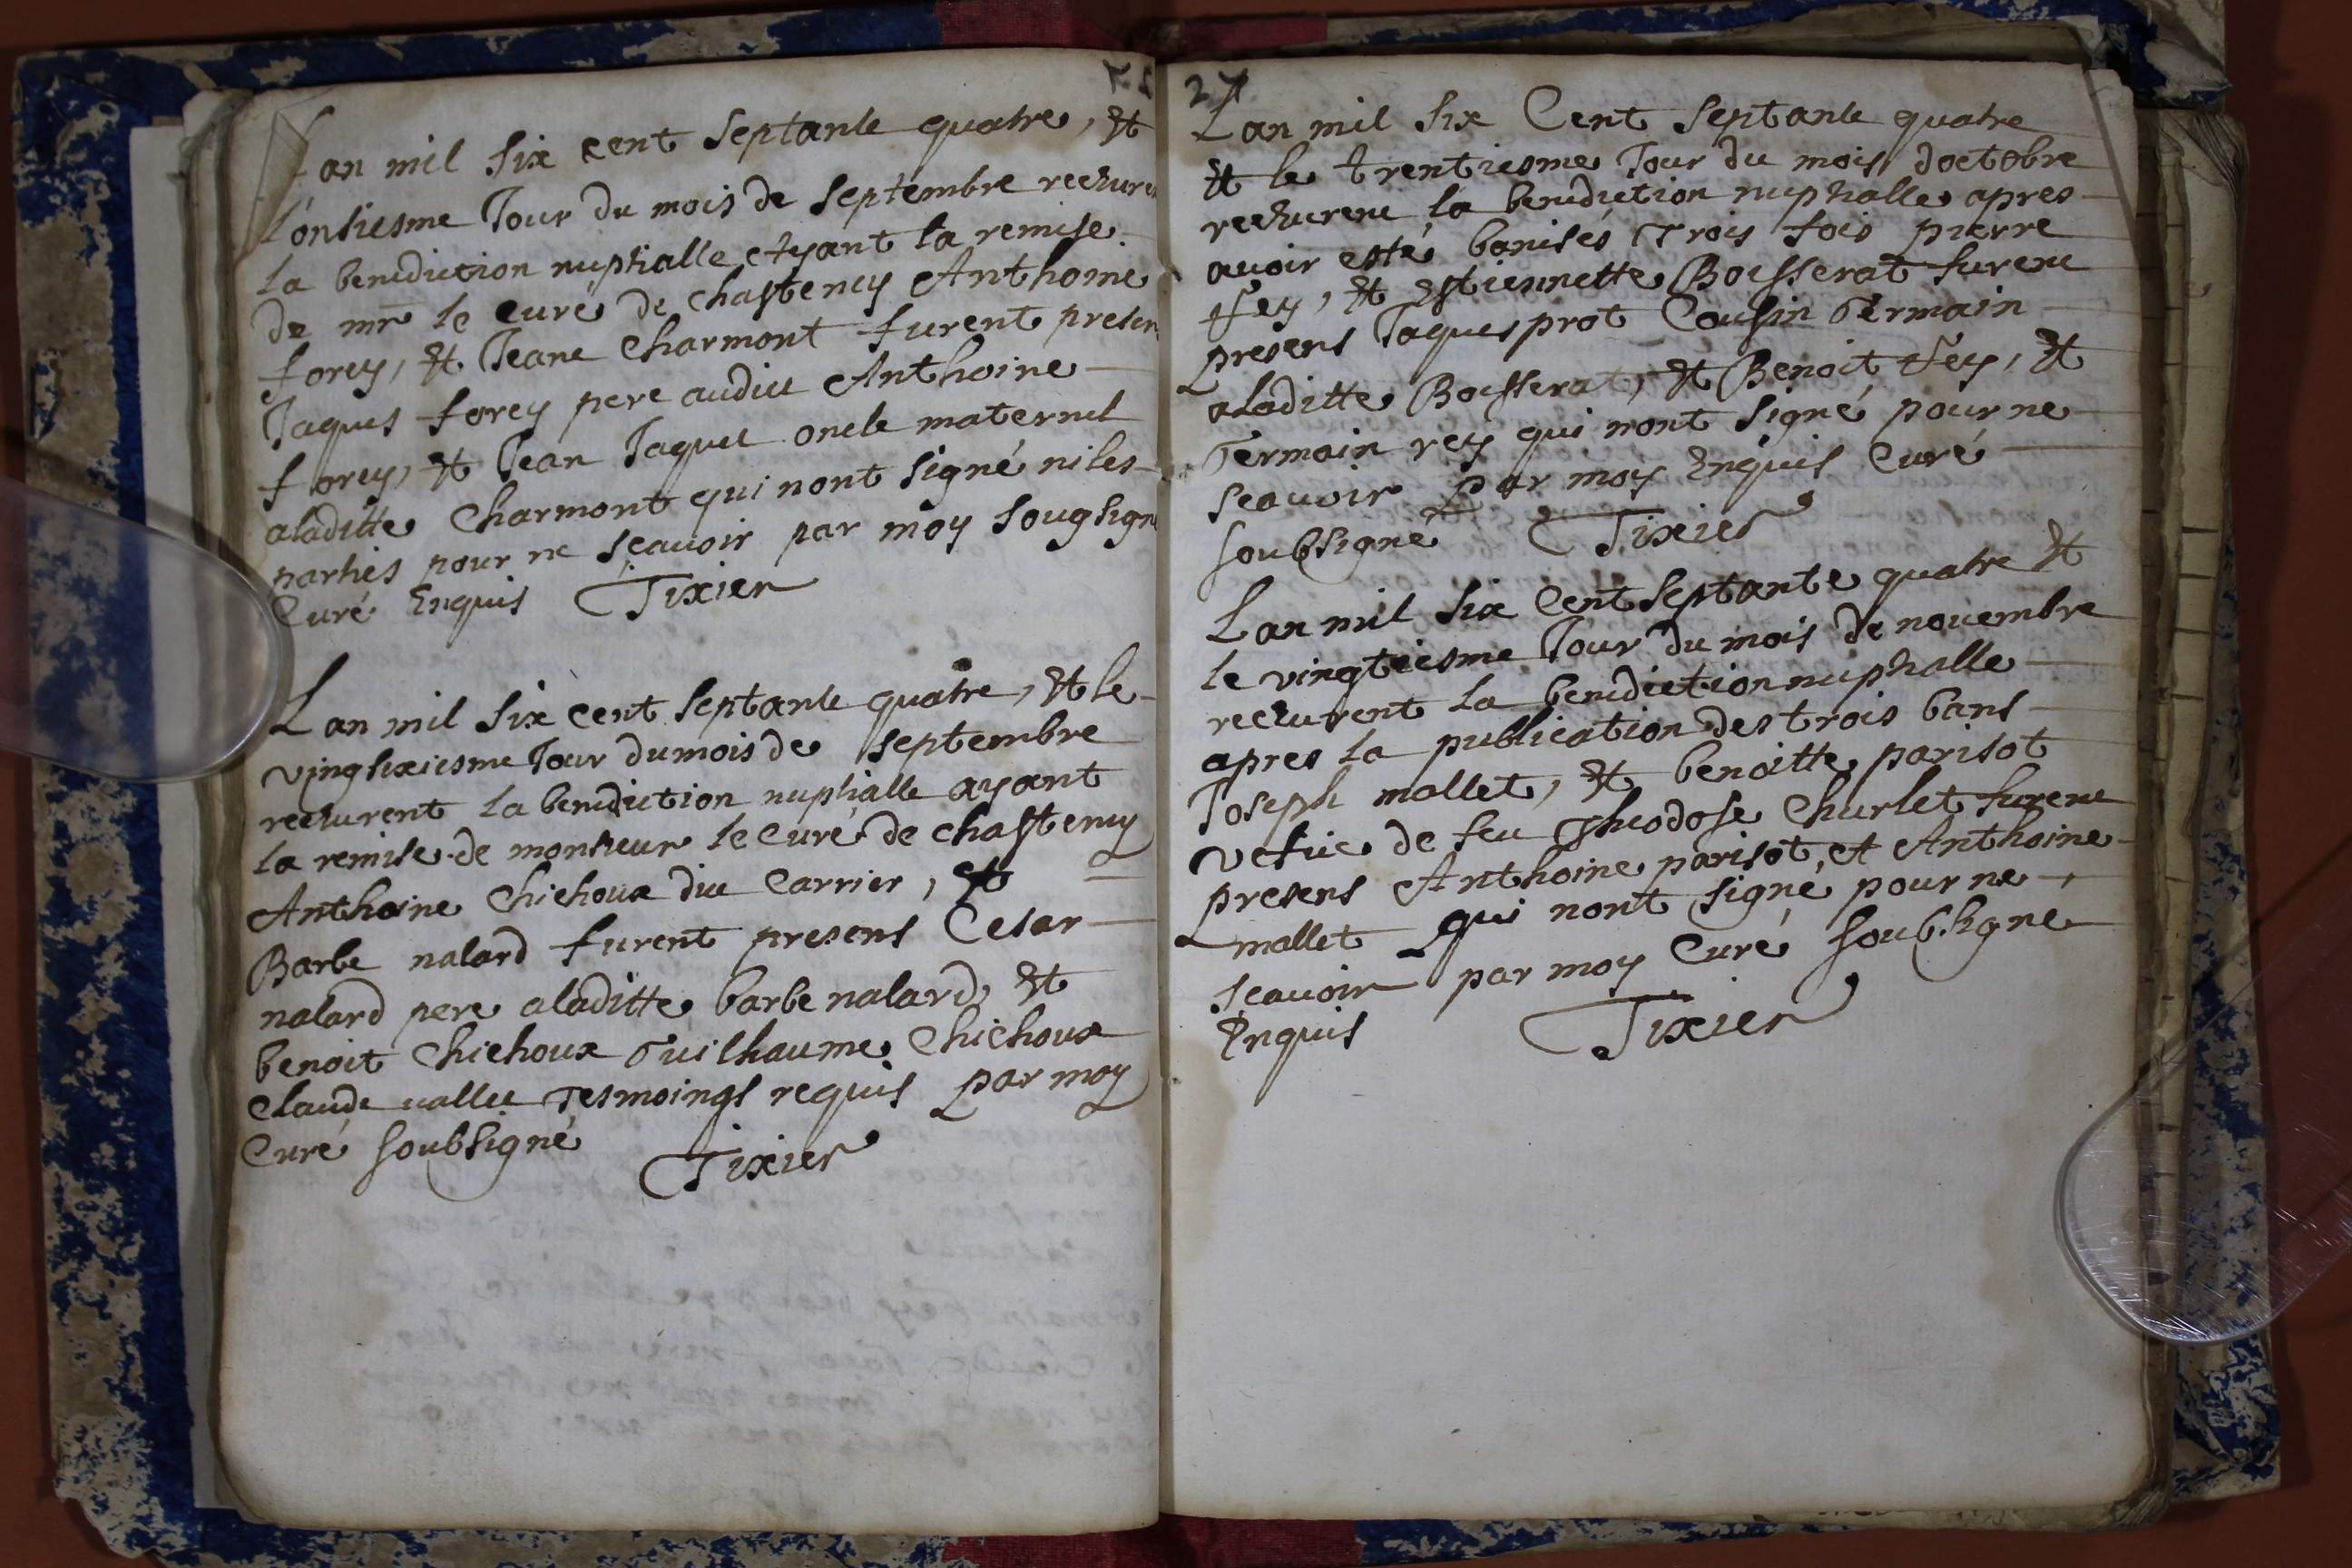 Lan mil six cent septante quatre, et
l'onsiesme Jour du mois de septembre recevre
la benediction nuptialle, Ayant la remise
de mr le curé de chasteney Anthoine
forey, et Jeane Charmont furent presen
Jaques forey pere audict Anthoine
forey, et Jean Jaquet oncle maternel
aladitte Charmont qui nont signé ni les
parties pour ne sçauoir par moy sougsign
Curé Enquis Tixier
Lan mil six cent septante quatre, et le
vingsixiesme Jour du mois de septembre
receurent la benediction nuptialle ayant
la remise de monsieur le Curé de chasteney
Anthoine Chichoux dict Carrier, et
Barbe nalard furent presens Cesar
nalard pere aladitte barbe nalard, et
benoit Chichoux Guilhaume Chichoux
claude vallet Tesmoings requis par moy
Curé soubsigné Tixier
27
Lan mil six Cent septante quatre
et le trentiesme Jour du mois doctobre
receurent la benediction nuptialle apres
auoir esté banisés Trois fois pierre
Fey, et Estiennette Boisserat furent
presens Jaques prot Cousin Germain
aladitte Boisserat, et Benoit Fey, et
Germain rey qui nont signé pour ne
sçauoir par moy Enquis Curé
soubsigné Tixier
Lan mil six Cent septante quatre et
le vingtiesme Jour du mois de nouembre
receurent la benediction nuptialle
apres la publication des trois bans
Joseph mallet, et benoitte parisot
vefue de feu Theodose Churlet furent
presens Anthoine parisot, et Anthoine
mallet qui nont signé pour ne
sçauoir par moy Curé soubsigne
Enquis Tixier